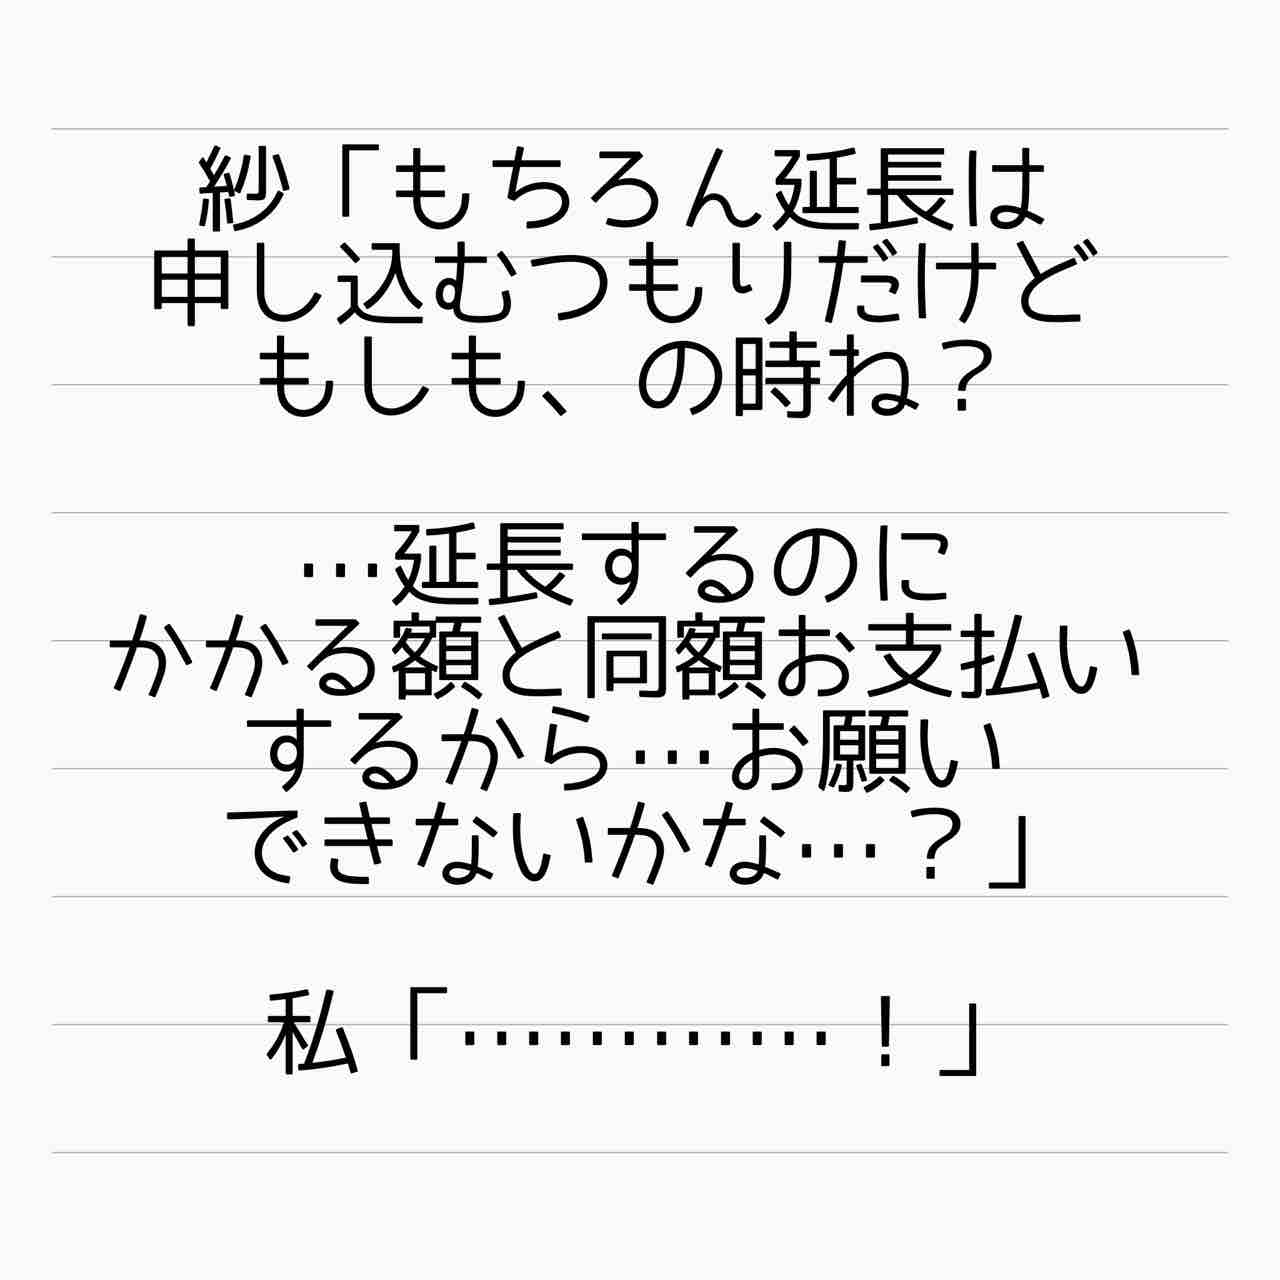 紗「もちろん延長は
申し込むつもりだけど
もしも、の時ね？
…延長するのに
かかる額と同額お支払い
するから…お願い
できないかな…？」
私「…………！」